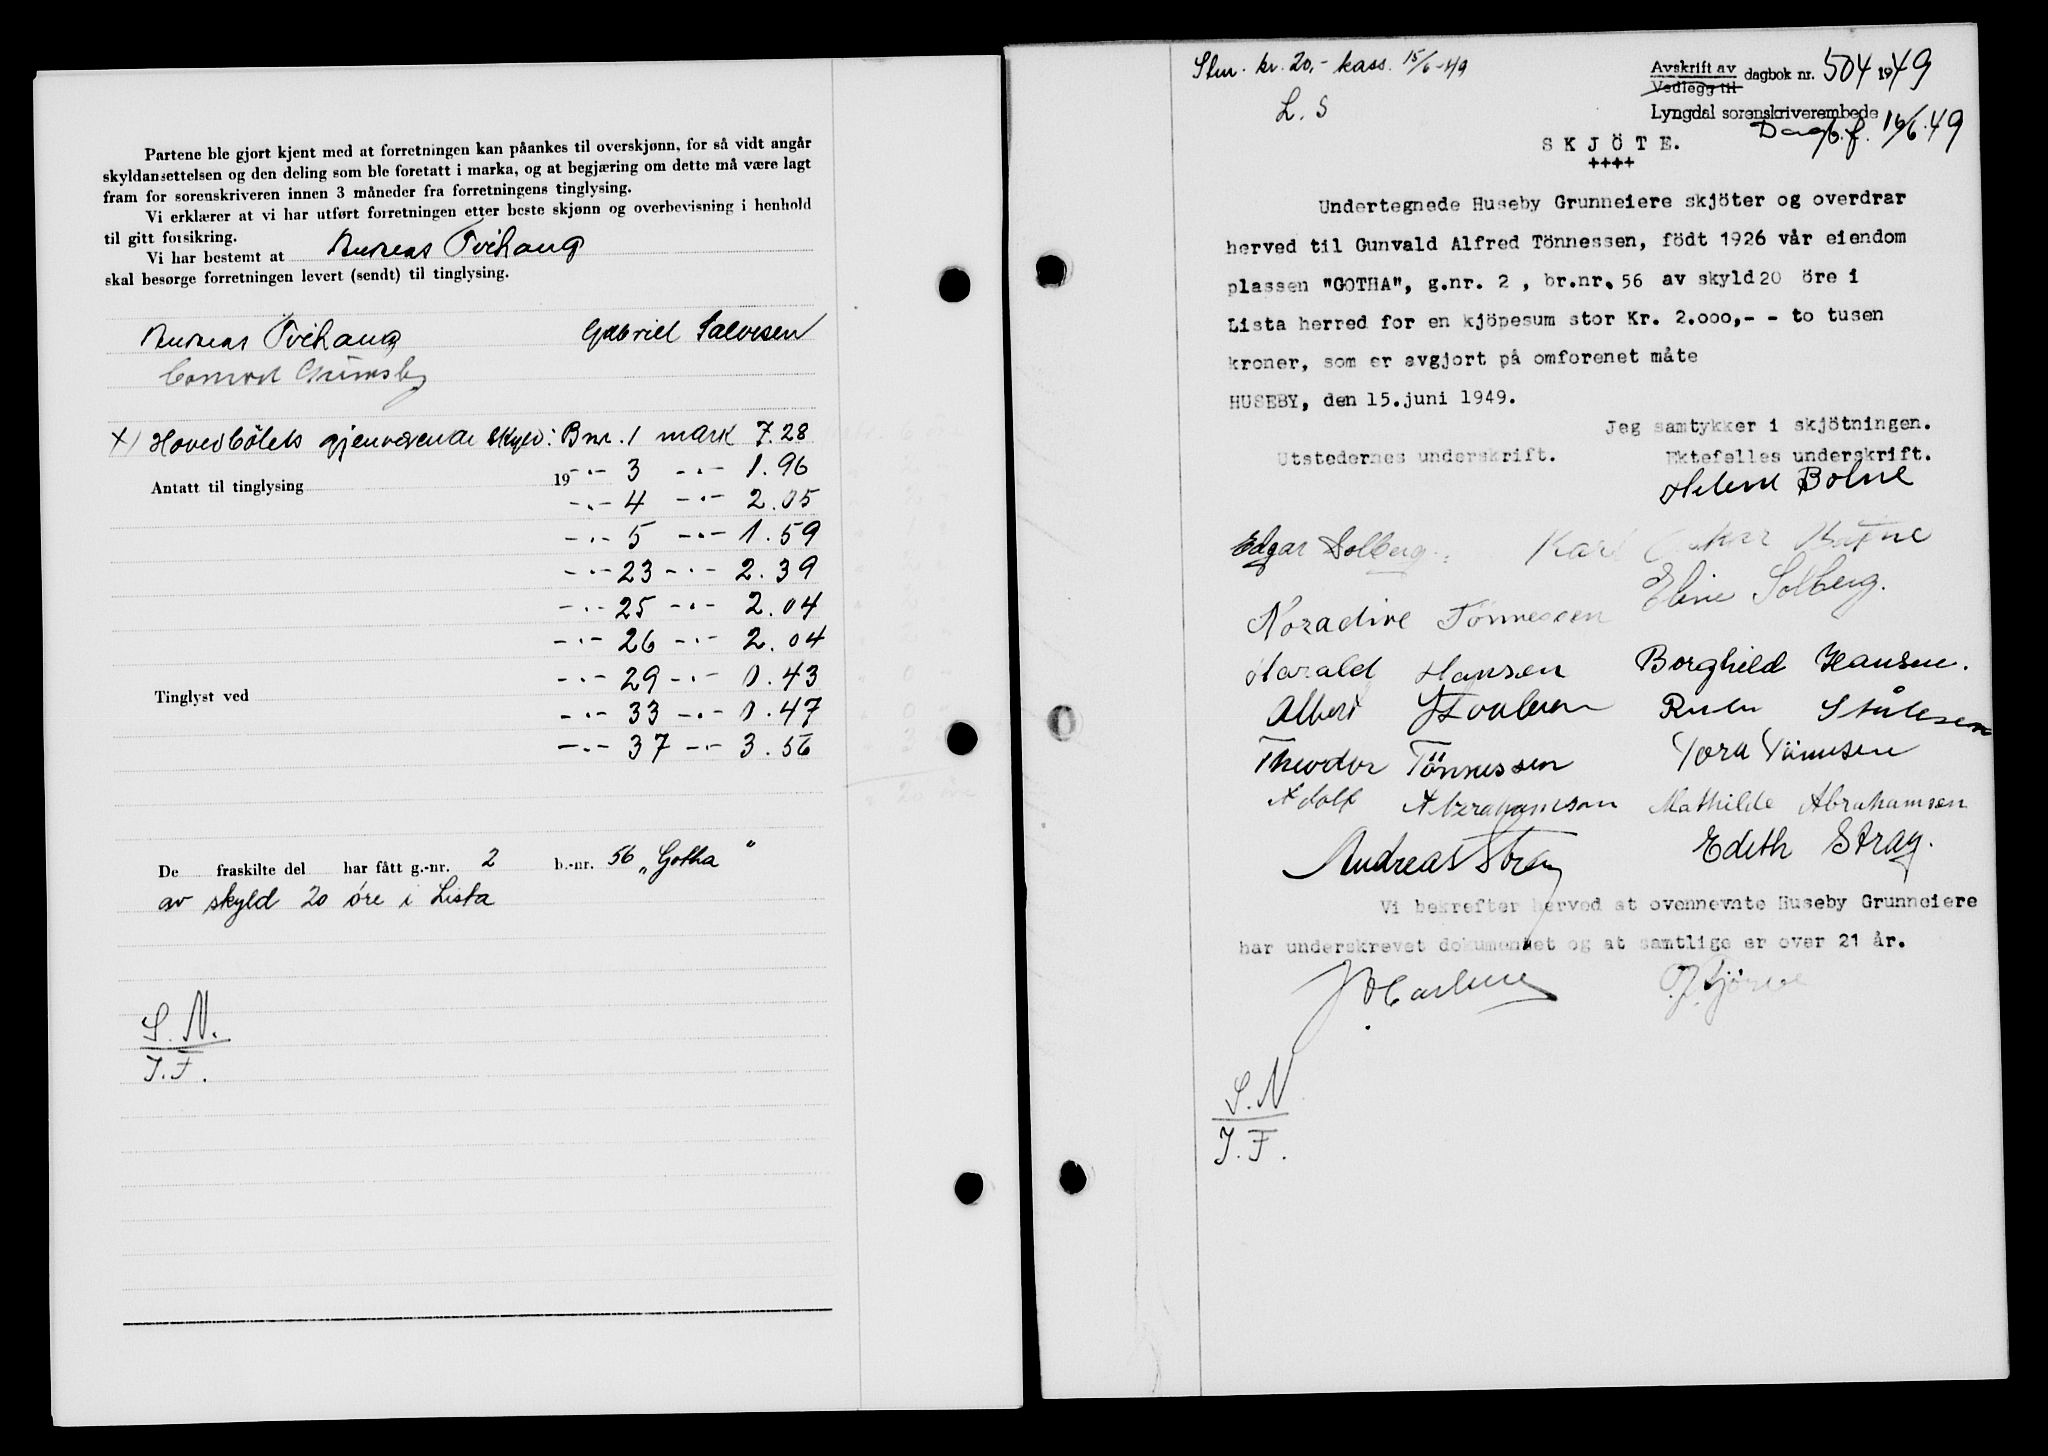 Partene ble gjort kjent med at forretningen kan påankes til overskjønn, for så vidt angår
skyldansettelsen og den deling som ble foretatt i marka, og at begjæring om dette må være lagt
fram for sorenskriveren innen 3 måneder fra forretningens tinglysing.
Vi erklærer at vi har utført forretningen etter beste skjønn og overbevisning i henhold
til gitt forsikring.
Vi har bestemt at Andreas Tvihaug
skal besørge forretningen levert (sendt) til tinglysing.
Andreas Tvihaug Gabriel Salvesen
Conrad Grimsby
X) Hovedbølets gjenværende skyld: Bnr. 1 mark 7.28
-"- 3 -"- 1.96
Antatt til tinglysing 19
-"- 4 -"- 2.05
-"- 5 -"- 1.59
-"- 23 -"- 2.39
-"- 25 -"- 2.04
-"- 26 -"- 2.04
-"- 29 -"- 0.43
Tinglyst ved
-"- 33 -"- 0.47
-"- 37 -"- 3.56
De fraskilte del har fått g.-nr. 2 b.-nr. 56 „Gotha"
av skyld 20 øre i Lista
S. N.
J. F.
Stm. kr. 20,- kass. 15/6-49
L. S
Avskrift av
Vedlegg til
dagbok nr. 504 1949
Lyngdal sorenskriverembede
Dagb.f. 16/6.49
SKJÖTE.
++++
Undertegnede Huseby Grunneiere skjöter og overdrar
herved til Gunvald Alfred Tönnessen, födt 1926 vår eiendom
plassen "GOTHA", g.nr. 2 , br.nr. 56 av skyld 20 öre i
Lista herred for en kjöpesum stor Kr. 2.000,- - to tusen
kroner, som er avgjort på omforenet måte
HUSEBY, den 15.juni 1949.
Jeg samtykker i skjötningen.
Utstedernes underskrift. Ektefelles underskrift.
Edgar Solberg. Karl
Eline Solberg.
Noradine Tönnessen
Harald Hansen Borghild Hansen.
Albert Stålesen
Theodor Tönnessen Tora Tönnesen
Adolf Abrahamsen Mathilde Abrahamsen
Andreas Stray Edith Stray.
Vi bekrefter herved at ovennevnte Huseby Grunneiere
har underskrevet dokumentet og at samtlige er over 21 år.
S. N
J. F.